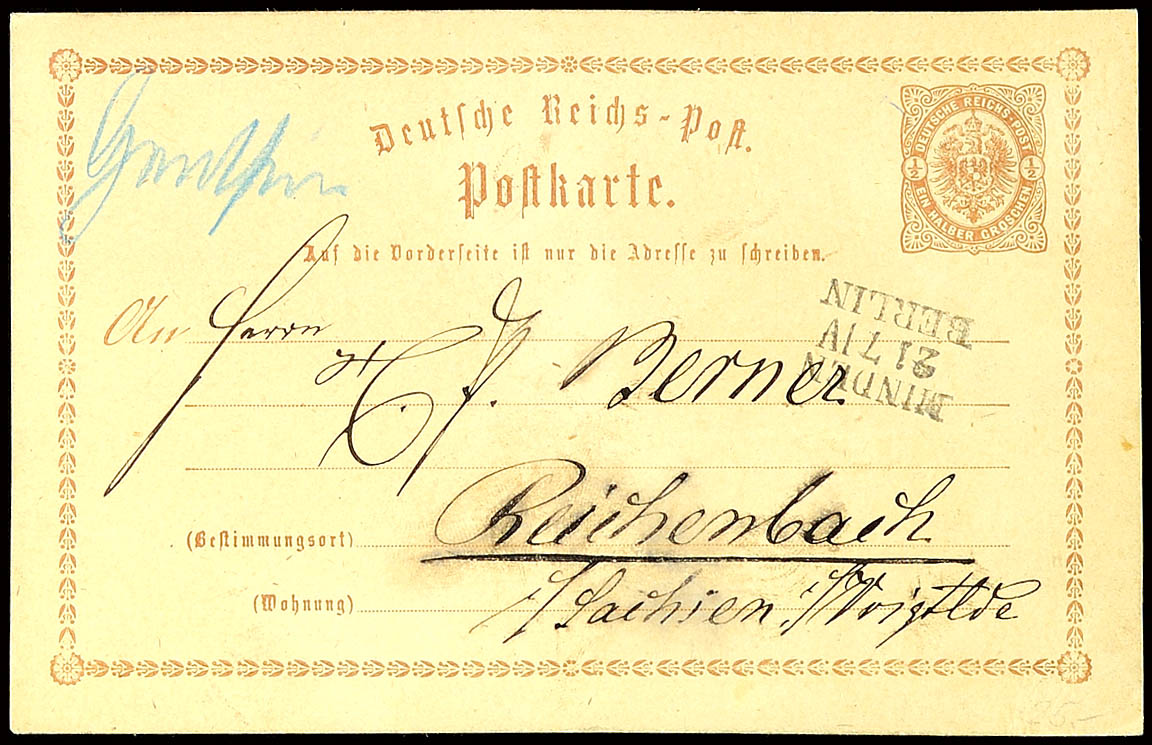 Genthin
Deutsche Reichs-Post.
Postkarte.
DEUTSCHE REICHS-POST
½ ½
EIN HALBER GROSCHEN
Auf die Vorderseite ist nur die Adresse zu schreiben.
MINDEN
21 7 IV
BERLIN
An Herrn
C. F. Berner
Reichenbach
(Bestimmungsort)
i/Sachsen i/Voigtlde
(Wohnung)
25.-